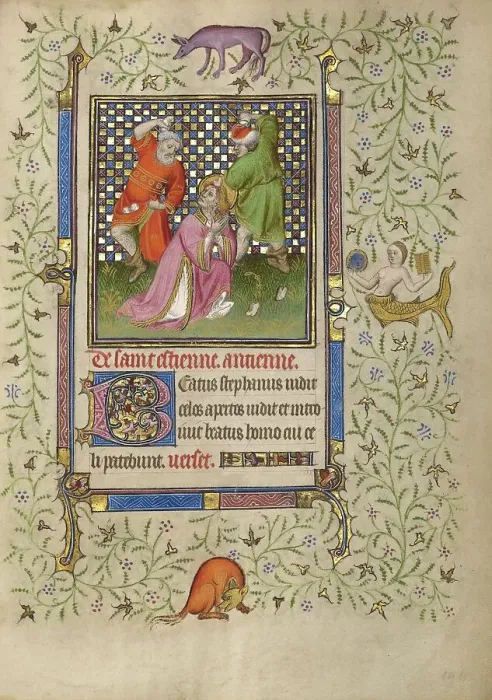 De saint estienne. antienne.
BEatus stephanus uidit
celos apertos uidit et intro
iuit beatus homo cui ce
li patebunt. verset.